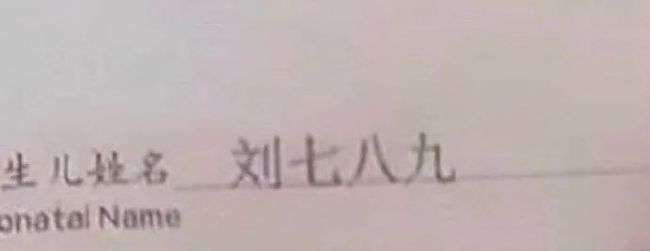 生儿姓名 刘七八九
onatal Name